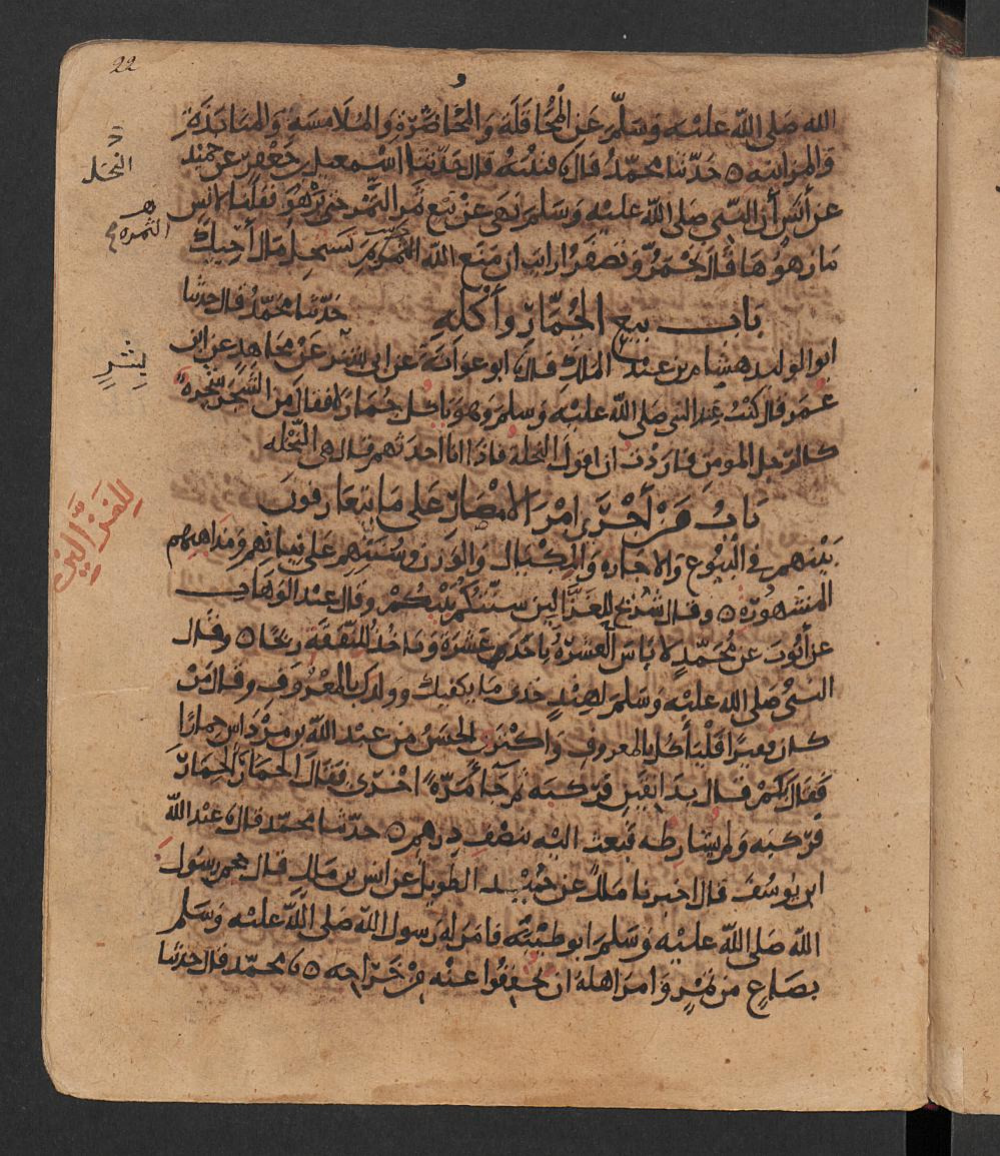 22
الله صَلى الله عليه وَسَلّم عَن المُحَاقَلَة وَالمُخَاضَرَةِ وَالمُلَامسَةِ وَالمنَابَذَةِ
وَالمزَابَنَه ه حَدّثنا محمّدٌ قال ثنا قتَيْبَة قال حَدّثنا اسْمعِيل بن جَعْفر عن حميْد
النخل
عن أنَسٍ أن النبى صَلى الله عليه وَسَلم نهى عن بَيع ثمَر التَّمْر حتى يَزْهُوَ فقلنَا لانس
الثمره
مَا زهْوُهَا قال تَحْمَرُّ وَتصْفَرُّ ارايت ان مَنَع الله الثمرة بمَ تسْتَحِل مَال أخِيك
بَاب بَيع الجُمَّار وَأكْلِهِ حَدّثنا محَمّدٌ قال حدثنا
ابو الوليد هشَام بن عبْد الملك قال ثنا ابو عوَانَة عن ابى بشر عَنْ مجَاهِدٍ عن ابن
بِشْرٍ
عُمَر قال كنْتُ عند النبى صَلى الله عليْه وَسَلم وَهوَ يَاكل جُمَّارًا فقال مِن الشَّجَر شَجَرة
كالرّجل المومِن فارَدْت ان اقول النخلة فاذا انا احدَثهم قال هى النَّخْله
بَابُ مَنْ أَجْرَى امْرَ الامْصَارِ عَلى مَا يَتعَارفونَ
للغَزَّالين
بَيْنهم فى الْبيُوع وَالاجَاره وَالمِكْيَال وَالوَزن وَسُنَنِهم عَلى نياتِهم وَمَذاهِبِهم
المشهُورَة ه وقال شُرَيْح للغَزَّالين سنّتكُمْ بَيْنكُمْ وقال عبْد الوَهَاب
عن أيّوبَ عن مُحَمّدٍ لا بَاسَ العَشَرَةُ بِاحَدَ عَشَرَ وَيَاخُذُ للنَّفَقَة ربْحًا ه وقال
النبىّ صَلى الله عليْه وَسَلم لهنْدٍ خذى مَا يكفيك وولدك بالمعْرُوفِ وقال مَنْ
كان فقيرًا فَلْيَأكُل بالمعروفِ وَاكْترَى الحسَنُ من عبْد الله بن مِرْدَاسٍ حمارًا
فَقَال بكَمْ قال بدَانِقَيْن فرَكبَه ثم جَا مَرّةً اخْرَى فقَالَ الحمَارَ الحِمَارَ
فرَكبَه وَلم يشارطه فبَعث اليْه بنصْف دِرهم ه حدّثنا محمّد قال ثنا عبْد الله
ابن يوسُفَ قال اخبرنا مَلكٌ عن حُمَيْد الطويل عن انس بن مَالك قال حجم رسُول
الله صَلى الله عليْه وَسَلم ابو طَيْبَة فامَرَ له رسول الله صَلى الله عليْه وَسَلم
بصَاعٍ من تمْرٍ وَامرَ اهلَهُ ان يخففُوا عنْه مِنْ خَرَاجِه ه ثنا محمّد قال حدثنا